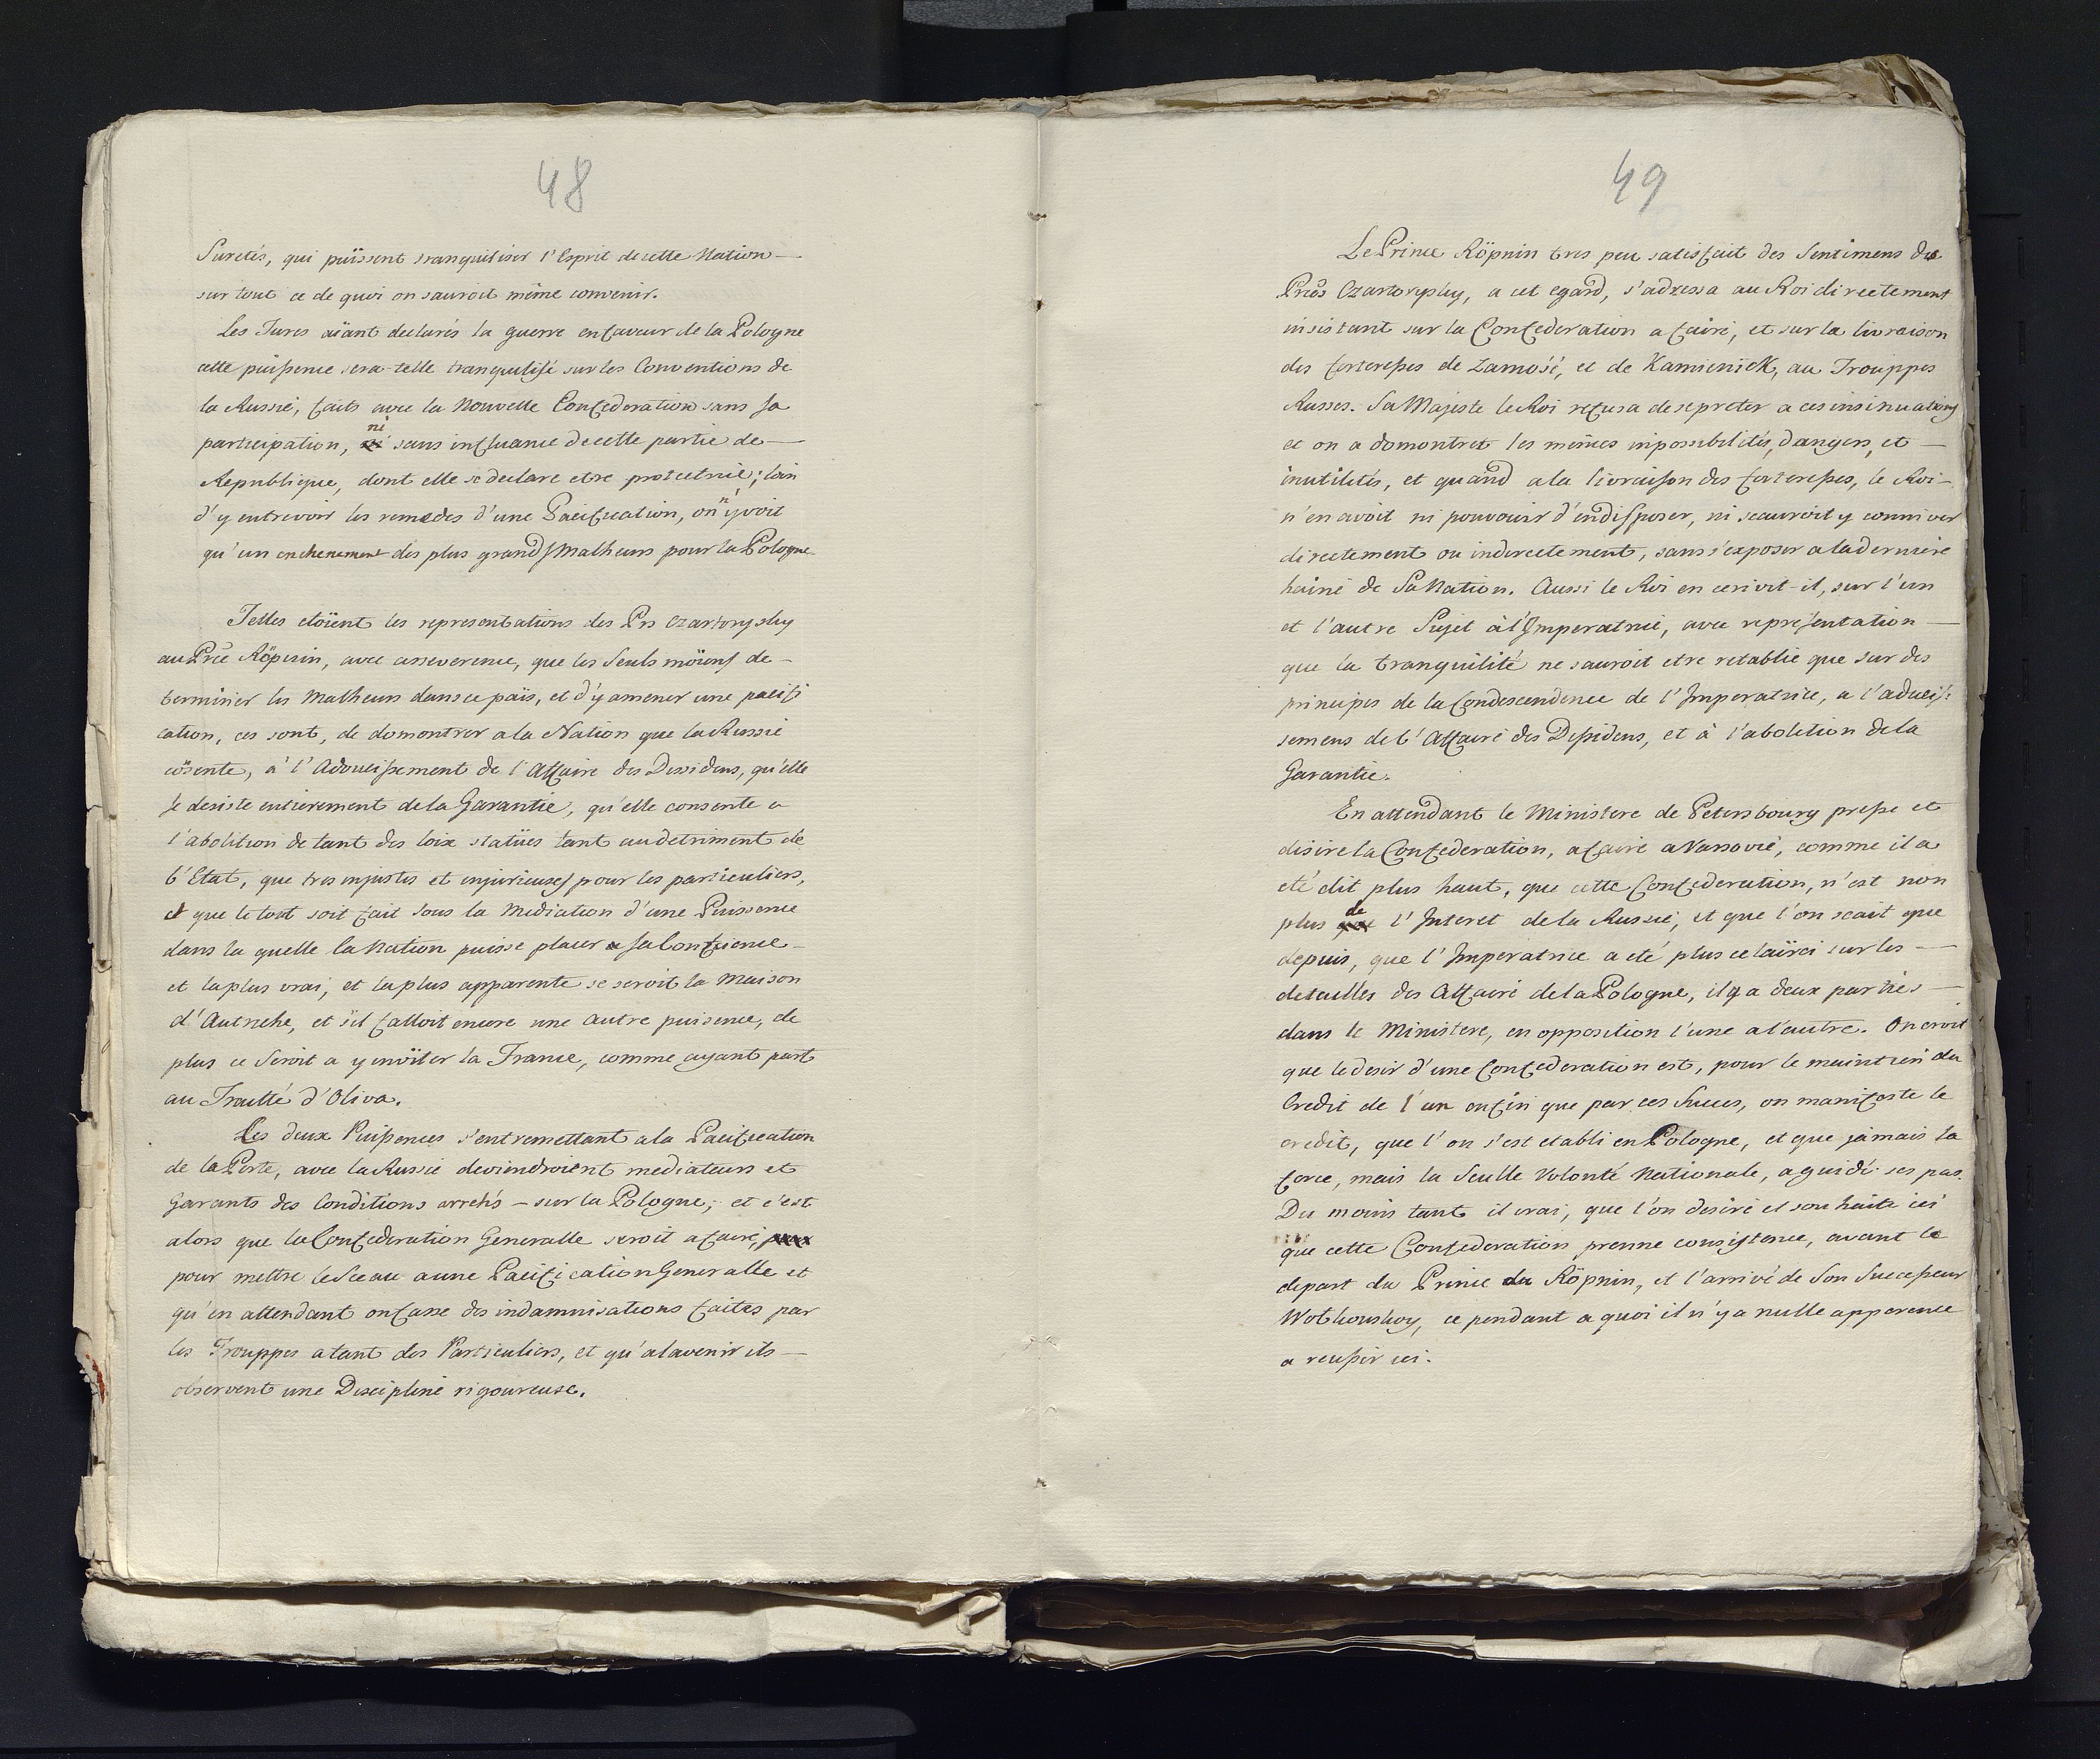 48
Suretés, qui puissent tranquiliser l'Esprit de cette Nation
sur tout ce de quoi on sauroit même convenir.
Les Turcs aïant declarés la guerre en faveur de la Pologne
cette puissence sera-telle tranquilisé sur les Conventions de
la Russie, faits avec la Nouvelle Confederation sans sa
participation, ni sans influance de cette partie de
Republique, dont elle se declare etre protectrice; loin
d'y entrevoir les remedes d'une Pacification, on n'y voit
qu'un enchenement des plus grands Malheurs pour la Pologne
Telles etoïent les representations des Prs Czartoryski
au Prce Röpnin, avec asseverence, que les Seuls moïens de
terminer les Malheurs dans ce païs, et d'y amener une pacifi
cation, ces sont, de domontrer a la Nation que la Russie
cosente, à l'Adoucissement de l'Affaire des Dissidens, qu'elle
se desiste entierement de la Garantie, qu'elle consente a
l'abolition de tant des loix statües tant au detriment de
l'Etat, que tres injustes et injurieuses pour les particuliers,
et que le tout soit fait sous la Mediation d'une Puissence
dans la quelle la Nation puisse placer sa Confience
et la plus vrai, et la plus apparente se seroit la Maison
d'Autriche, et s'il falloit encore une autre puisence, de
plus ce Seroit a y invöiter la France, comme ayant part
au Traitté d'Oliva.
Les deux Puissences s'entremettant a la Pacification
de la Porte, avec la Russie deviendroient mediateurs et
Garants des Conditions arretés – sur la Pologne; et c'est
alors que la Confederation Generalle seroit a faire,
pour mettre le Sceau a une Pacification Generalle et
qu'en attendant on fasse des indamnisations faites par
les Trouppes a tant des Particuliers, et qu'a lavenir ils
observent une Discipline rigoureuse.
49
Le Prince Röpnin tres peu satisfait des Sentimens des
Prces Czartorysky, a cet egard, s'adressa au Roi directement
insistant sur la Confederation a faire, et sur la livraison
des forteresses de Zamość, et de Kamienick, au Trouppes
Russes. Sa Majeste le Roi refusa de se preter a ces insinuations
et on a domontret les mêmes inpossibilités, dangers, et
inutilités, et quand a la livraison des forteresses, le Roi
n'en avoit ni pouvouir d'en disposer, ni scauroit y conniver
directement ou indirectement, sans s'exposer a la derniere
haine de Sa Nation. Aussi le Roi en ecrivit-il, sur l'un
et l'autre Sujet à l'Imperatrice, avec representation
que la tranquilité ne sauroit etre retablie que sur des
principes de la Condescendence de l'Imperatrice, a l'adoucis-
semens de l'Affaire des Dissidens, et à l'abolition de la
Garantie.
En attendant le Ministere de Petersbourg presse et
disire la Confederation, a faire a Varsovie, comme il a
eté dit plus haut, que cette Confederation, n'est non
plus de l'Interet de la Russie, et que l'on scait que
depuis, que l'Imperatrice a eté plus eclaïrci sur les
detailles des Affaire de la Pologne, il y a deux parties
dans le Ministere, en opposition l'une a l'autre. On croit
que le desir d'une Confederation est, pour le maintien du
Credit de l'un enfin que par ces Succes, on manifeste le
credit, que l'on s'est etabli en Pologne, et que jamais la
force, mais la Seulle Volonté Nationale, a guidé ses pas.
Du moins tant il vrai, que l'on desire et souhaite ici
que cette Confederation prenne consistence, avant le
depart du Prince du Röpnin, et l'arrivé de Son Successeur
Wolkonskoy, ce pendant a quoi il n'y a nulle apparence
a reussir ici.